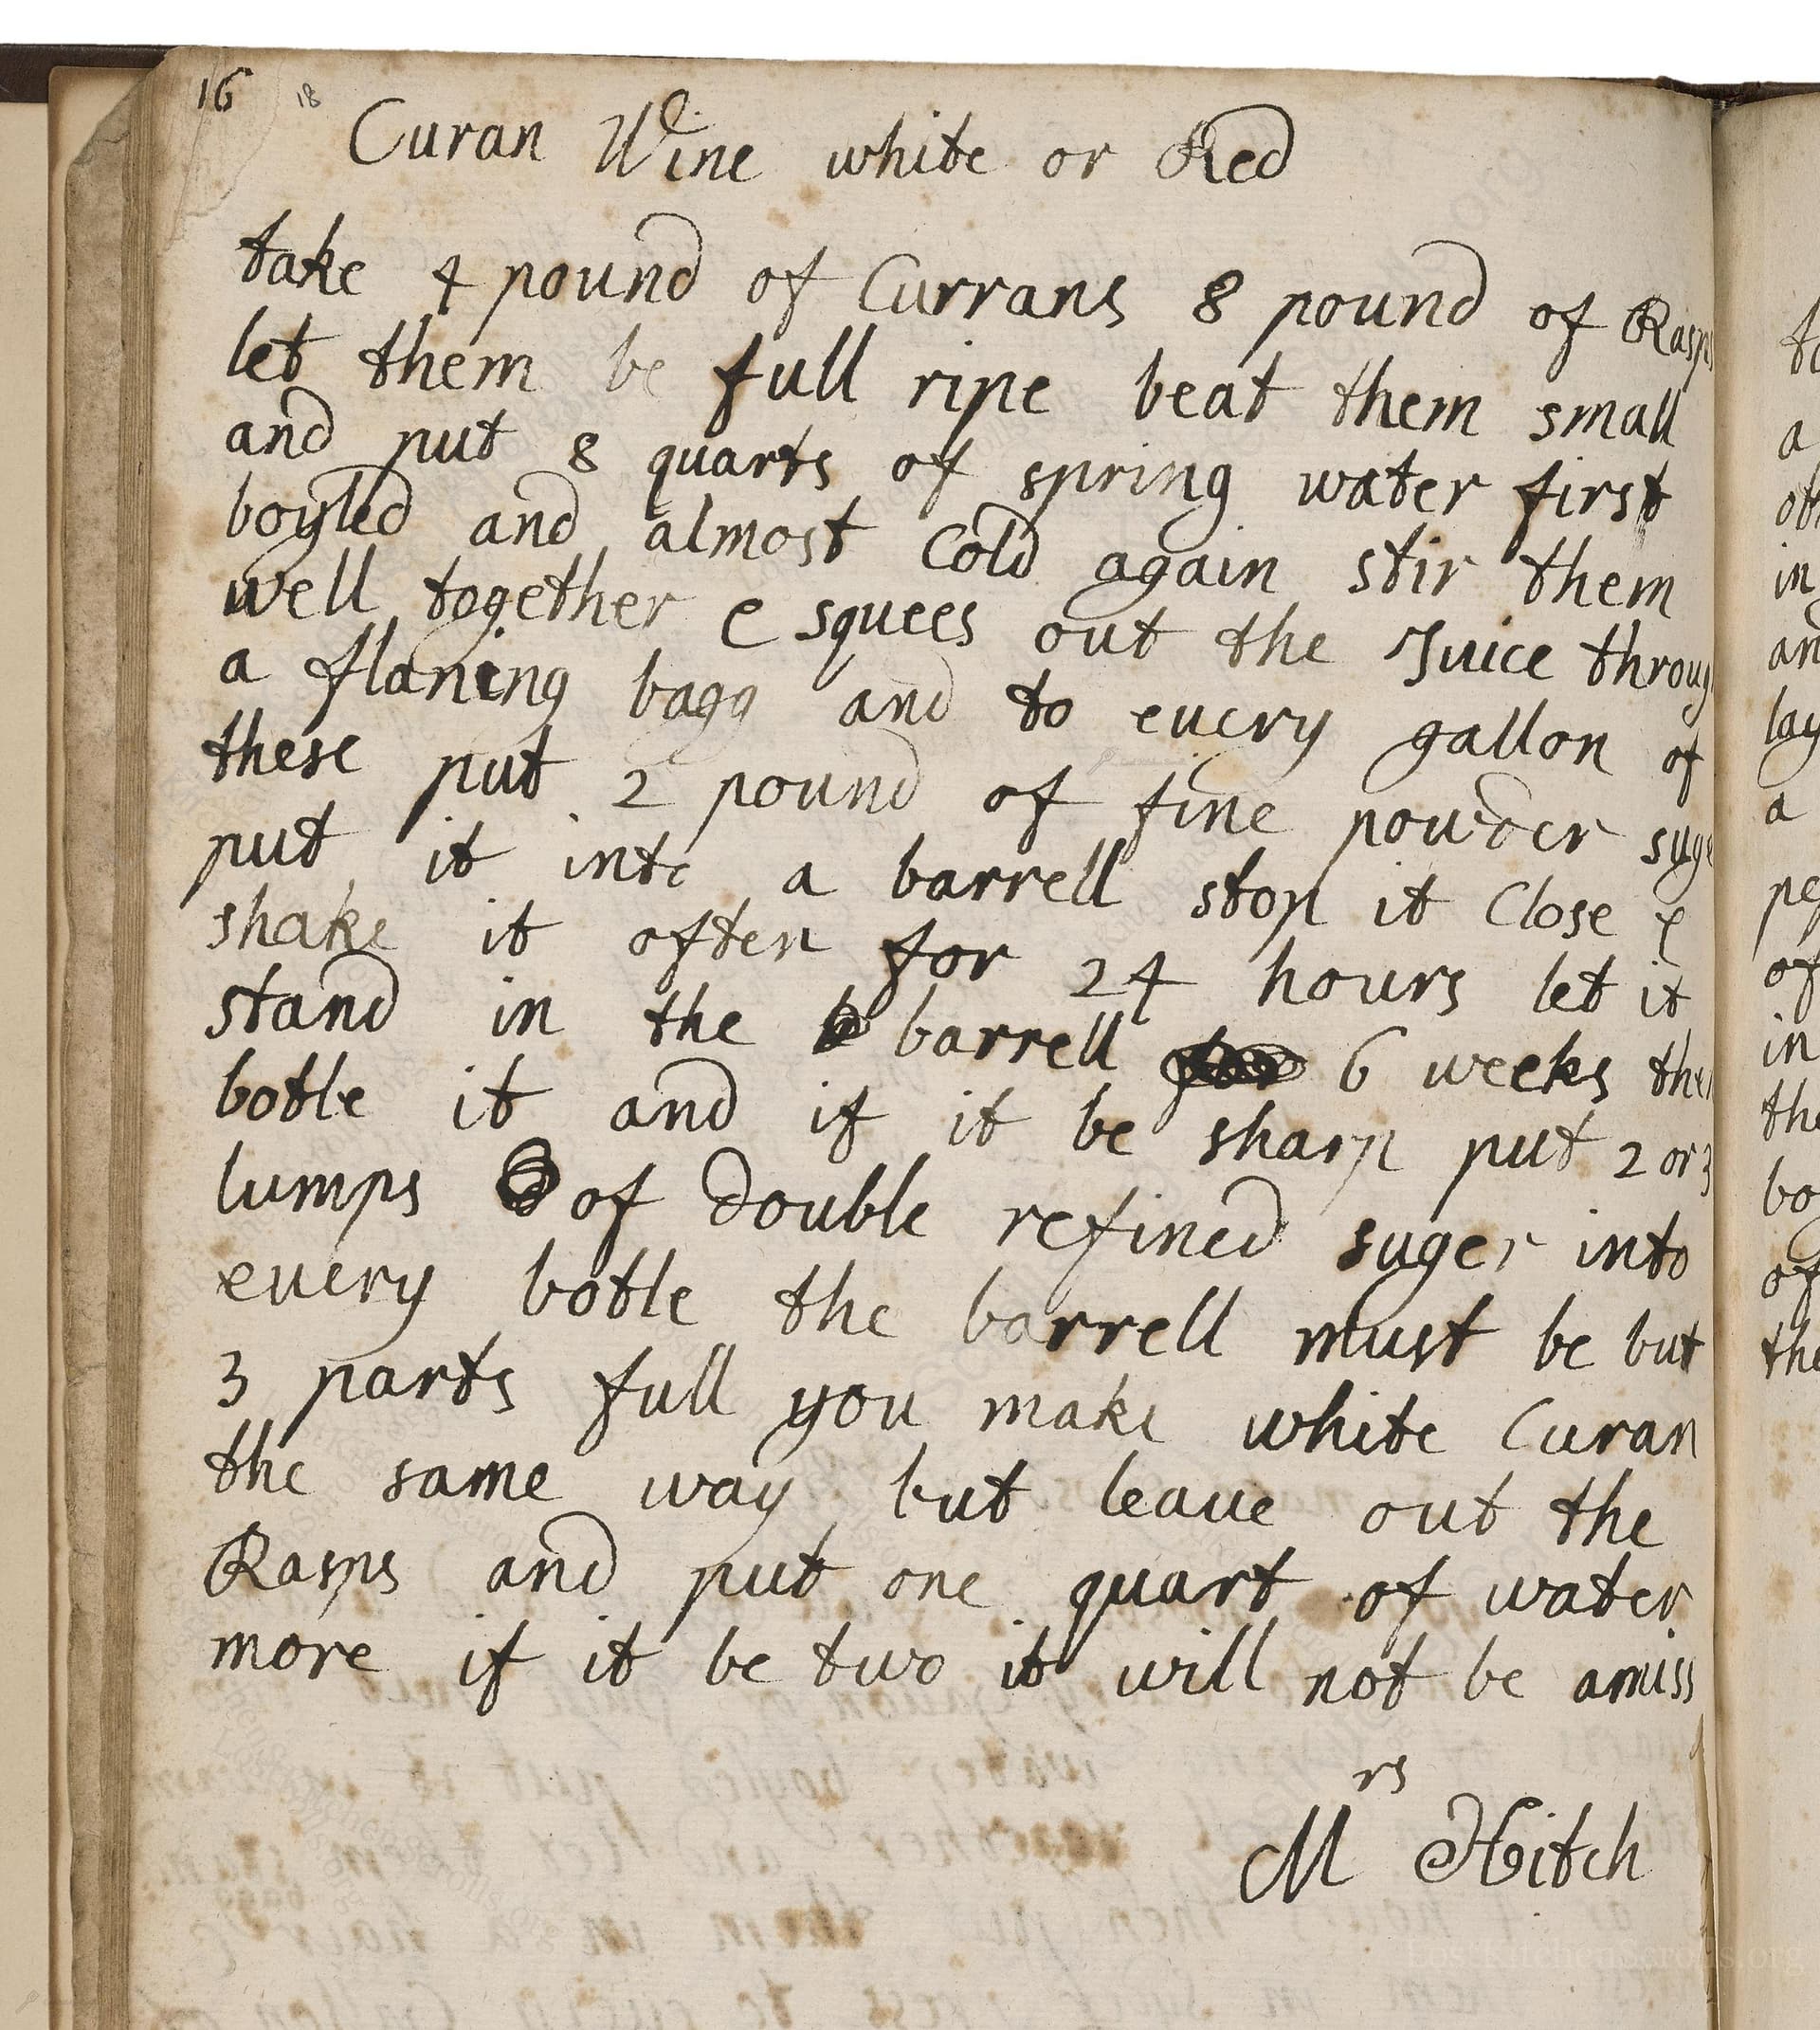 16 18
Curan Wine white or Red
take 4 pound of Currans 8 pound of Rasps
let them be full ripe beat them small
and put 8 quarts of spring water first
boyled and almost Cold again stir them
well together & squees out the Juice throug
a flaning bagg and to euery gallon of
these put 2 pound of fine powder suge
put it into a barrell stop it Close &
shake it often for 24 hours let it
stand in the barrell for 6 weeks then
botle it and if it be sharp put 2 or 3
lumps of double refined suger into
euery botle the barrell must be but
3 parts full you make white Curan
the same way but leaue out the
Rasps and put one quart of water
more if it be two it will not be amiss
Mrs Hitch